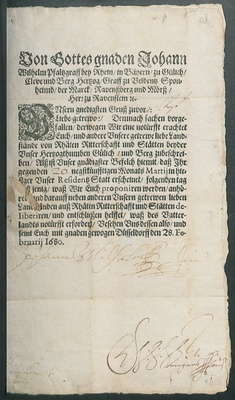 Von Gottes gnaden Johann
Wilhelm Pfaltzgraff bey Rhein / in Bäyern / zu Gülich /
Cleve und Berg Hertzog / Graff zu Veldentz Spon-
heimb / der Marck / Ravensberg und Mörß /
Herr zu Ravenstein ꝛc.
Unsern gnedigsten Gruß zuvor /
Liebe getrewe / Demnach sachen vorge-
fallen / derwegen Wir eine notürfft erachtet
Euch und andere Unsere getrewe liebe Land-
stände von Rhäten Ritterschafft und Stätten beyder
Unser Hertzogthumben Gülich / und Berg zubeschrei-
ben / Alß ist Unser gnädigster Befelch hiemit daß Ihr
gegenden 20. negstkünfftigen Monats Martii in hie-
siger Unser Residentz Statt erscheinet / folgenden tag
waß Wir Euch proponiren werden / anhö-
ret und darauff neben anderen Unseren getrewen lieben
Land Ständen auß Rhäten Ritterschafft und Stätten de-
liberiren / und entschliessen helffet / waß des Vatter-
landts notürfft erfordert / Versehen Uns dessen also / und
seint Euch mit gnaden gewogen Düsseldorff den 28. Fe-
bruarij 1680.